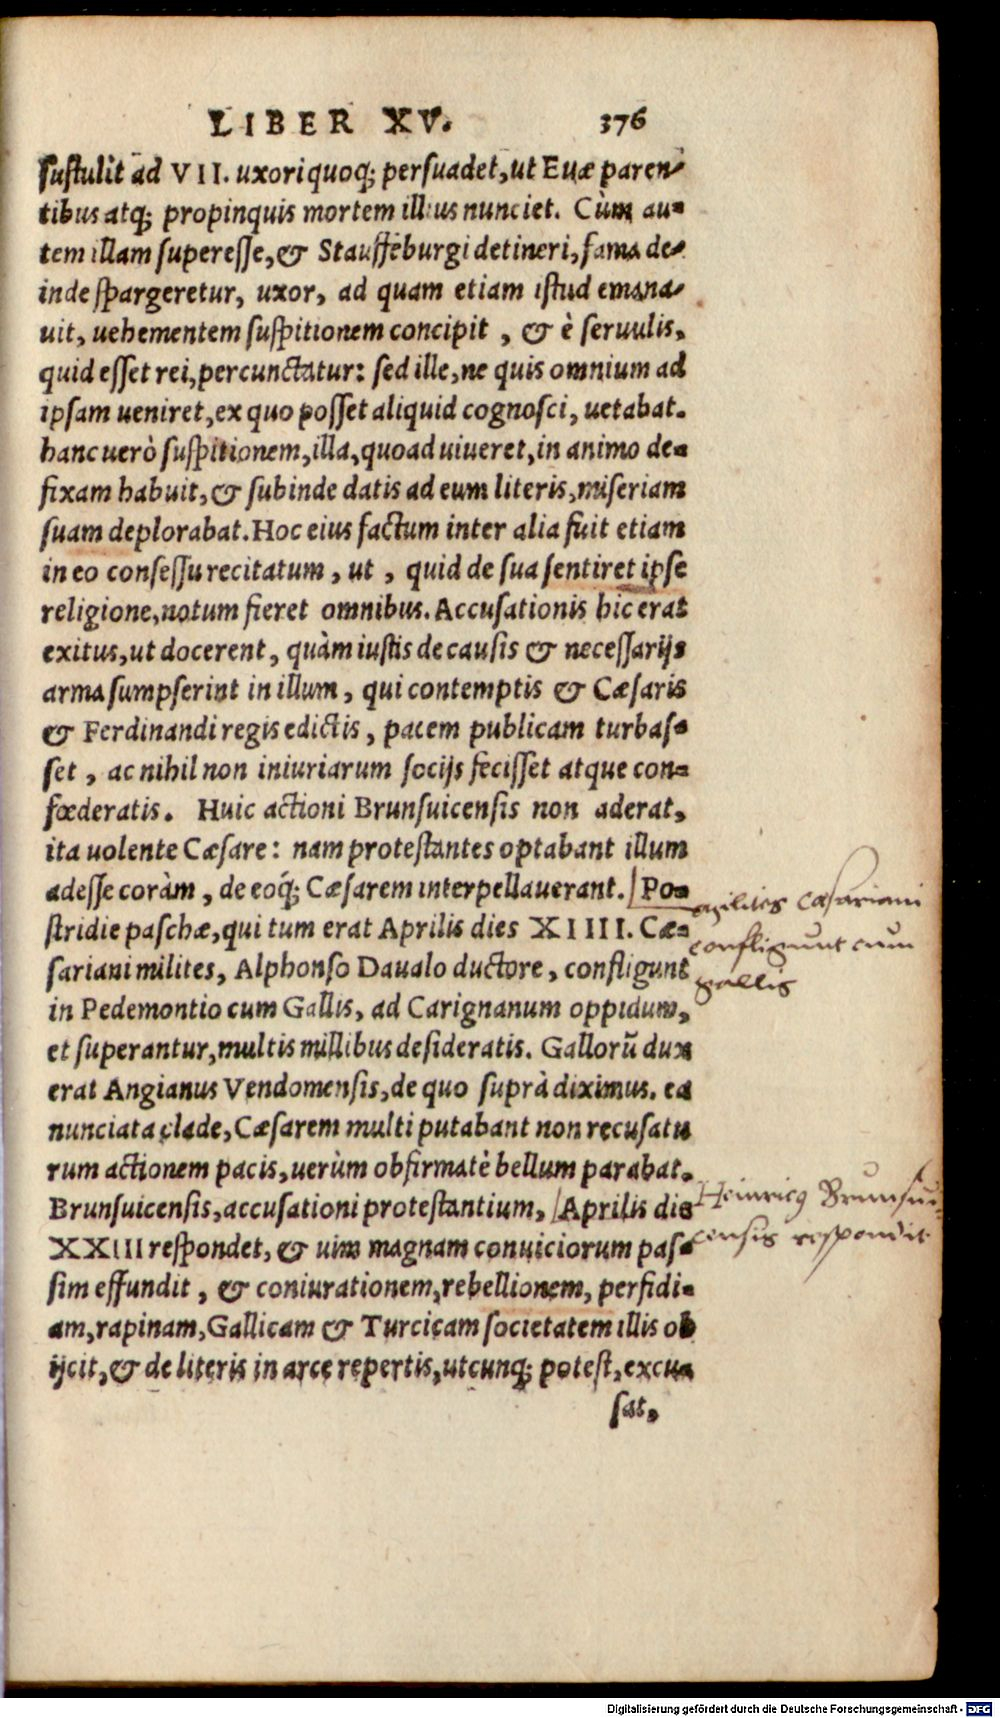 LIBER XV. 376
sustulit ad VII. uxori quoq; persuadet, ut Euæ paren-
tibus atq; propinquis mortem illius nunciet. Cùm au-
tem illam superesse, & Stauffeburgi detineri, fama de-
inde spargeretur, uxor, ad quam etiam istud emana-
uit, uehementem suspitionem concipit, & è seruulis,
quid esset rei, percunctatur: sed ille, ne quis omnium ad
ipsam ueniret, ex quo posset aliquid cognosci, uetabat.
hanc uerò suspitionem, illa, quoad uiueret, in animo de-
fixam habuit, & subinde datis ad eum literis, miseriam
suam deplorabat. Hoc eius factum inter alia fuit etiam
in eo consessu recitatum, ut, quid de sua sentiret ipse
religione, notum fieret omnibus. Accusationis hic erat
exitus, ut docerent, quàm iustis de causis & necessarijs
arma sumpserint in illum, qui contemptis & Cæsaris
& Ferdinandi regis edictis, pacem publicam turbas-
set, ac nihil non iniuriarum socijs fecisset atque con-
fœderatis. Huic actioni Brunsuicensis non aderat,
ita uolente Cæsare: nam protestantes optabant illum
adesse coràm, de eoq́; Cæsarem interpellauerant. Po-
stridie paschæ, qui tum erat Aprilis dies XIIII. Cæ-
sariani milites, Alphonso Daualo ductore, confligunt
in Pedemontio cum Gallis, ad Carignanum oppidum,
et superantur, multis millibus desideratis. Gallorū dux
erat Angianus Vendomensis, de quo suprà diximus. ea
nunciata clade, Cæsarem multi putabant non recusatu
rum actionem pacis, uerùm obfirmatè bellum parabat.
Brunsuicensis, accusationi protestantium, Aprilis die
XXIII respondet, & uim magnam conuiciorum pas-
sim effundit, & coniurationem, rebellionem, perfidi-
am, rapinam, Gallicam & Turcicam societatem illis ob
ijcit, & de literis in arce repertis, utcunq; potest, excu-
sat,
milites cæsariani
confligunt cum
gallis
Heinricus Brunsui-
censis respondit
Digitalisierung gefördert durch die Deutsche Forschungsgemeinschaft - DFG